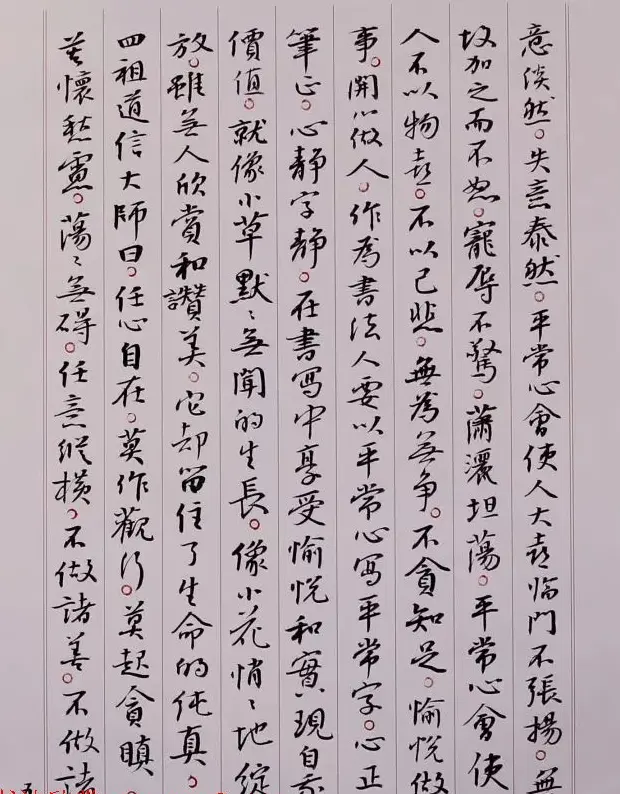 意淡然。失意泰然。平常心會使人大喜臨門不張揚。無
故加之而不怒。寵辱不驚。瀟灑坦蕩。平常心會使
人不以物喜。不以己悲。無為無争。不貪知足。愉悅做
事。開心做人。作為書法人要以平常心寫平常字。心正
筆正。心靜字靜。在書寫中享受愉悅和實現自我
價值。就像小草默〻無聞的生長。像小花悄〻地綻
放。雖無人欣賞和讚美。它却留住了生命的純真。
四祖道信大師曰。任心自在。莫作觀行。莫起貪瞋
莫懷愁慮。蕩〻無碍。任意縱橫。不做諸善。不做諸